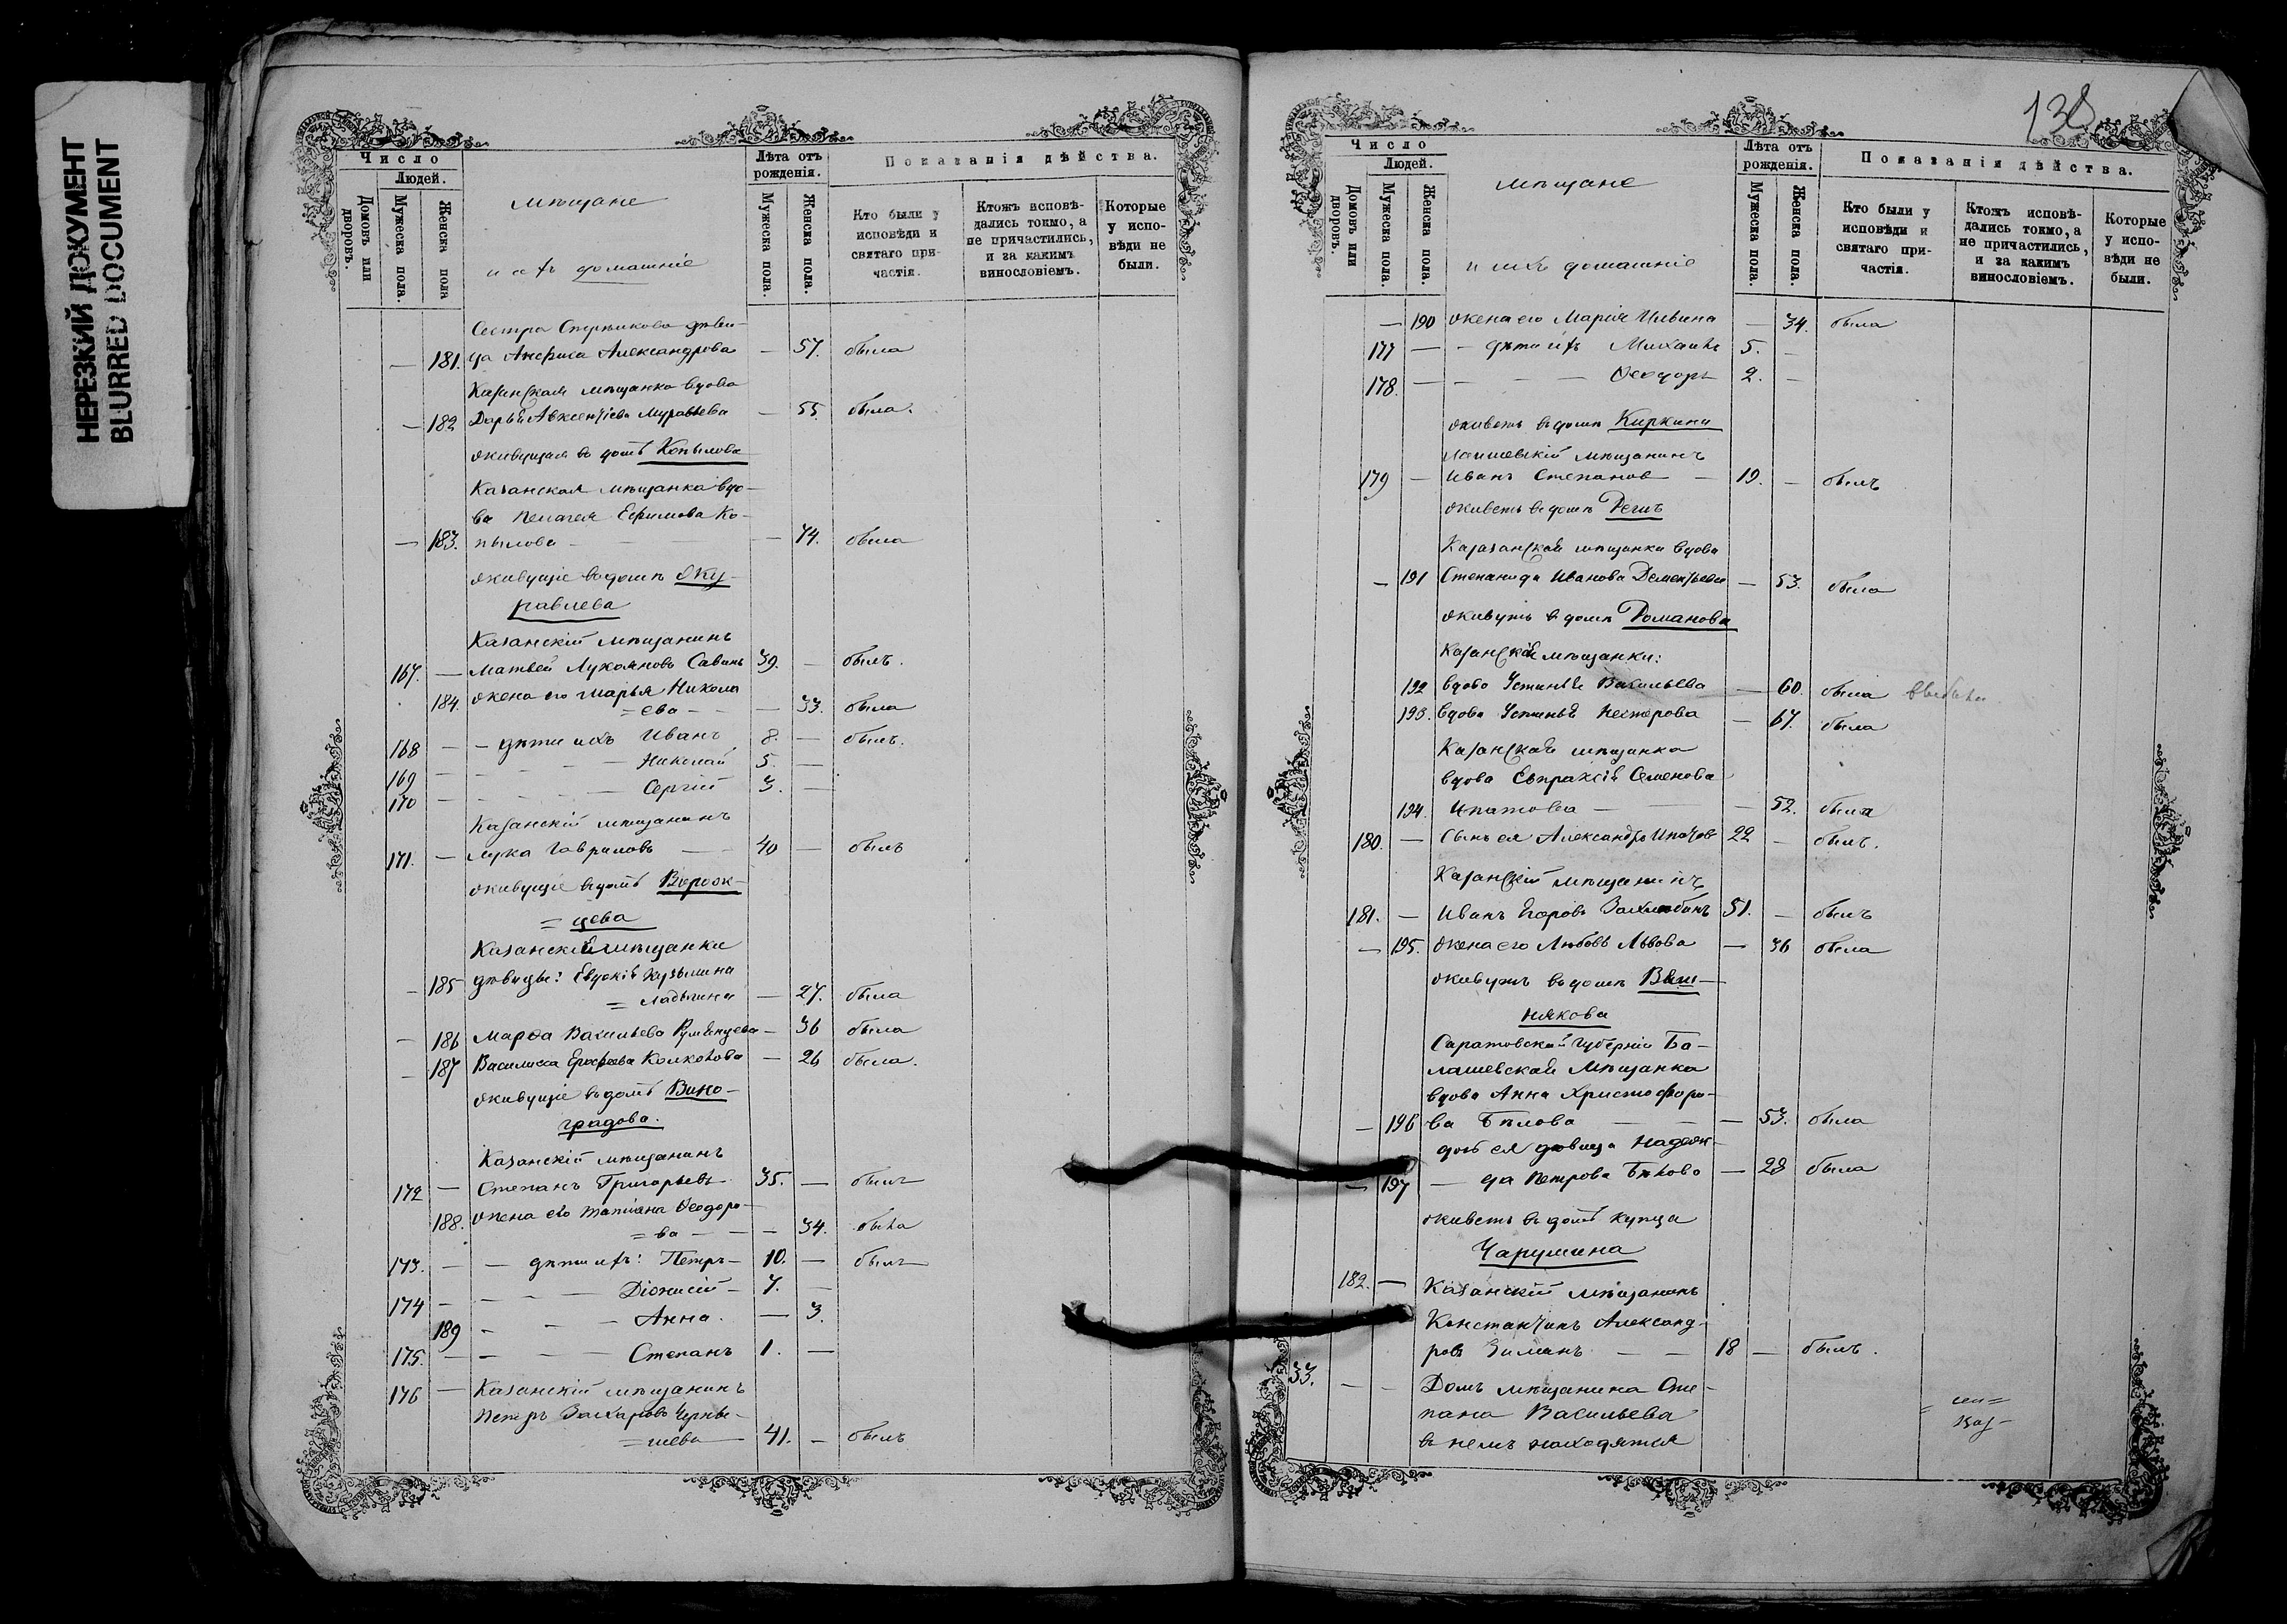 НЕРЕЗКИЙ ДОКУМЕНТ
BLURRED DOCUMENT
Число
Людей.
Домовъ или дворовъ.
Мужеска пола.
Женска пола
мѣщане
и ихъ домашніе
Лѣта отъ рожденія.
Мужеска пола.
Женска пола.
Показанія дѣйства.
Кто были у исповѣди и святаго причастія.
Ктожъ исповѣдались токмо, а не причастились, и за какимъ винословіемъ.
Которые у исповѣди не были.
Сестра дѣви-
— 181. ца Анфиса Александрова — 57. была
Казанская мѣщанка вдова
— 182 Дарья Авксентіева Муравьева — 55. была.
живущая въ домѣ Копылова
Казанская мѣщанка вдо-
ва Пелагея Ефимова Ко-
— 183. пылова — 74. была
живущіе въ домѣ Жу-
равлева
Казанскій мѣщанинъ
167. — Матвей Лукояновъ Савинъ 39. — былъ.
184. жена его Марья Никола
=ева — — 33. была
168 — — дѣти ихъ Иванъ 8. — былъ.
169 — — Николай 5. —
170 — — Сергій 3. —
Казанскій мѣщанинъ
171. — Лука Гавриловъ — 40 — былъ
живущіе въ домѣ Ворож-
=цева
Казанскія мѣщанки
— 185 дѣвицы: Евдокія Кузьмина
= Ладыгина — 27. была
— 186 Марѳа Васильева Румянцева — 36 была
— 187 Василиса Ерофеева Колкотова — 26 была.
живущіе въ домѣ Вино-
градова.
Казанскій мѣщанинъ
172 — Степанъ Григорьевъ 35. — былъ
188. жена его Татіана Ѳеодоро-
=ва — — 34. была
173. — — дѣти ихъ: Петръ — 10. — былъ
174 — — Діонисій — 7. —
189 — — Анна. — 3.
175. — — Степанъ 1. —
176 — Казанскій мѣщанинъ
Петръ Захаровъ Черны-
=шевъ 41. — былъ
138
Число
Людей.
Домовъ или дворовъ.
Мужеска пола.
Женска пола.
мѣщане
и ихъ домашніе
Лѣта отъ рожденія.
Мужеска пола.
Женска пола.
Показанія дѣйства.
Кто были у исповѣди и святаго причастія.
Ктожъ исповѣдались токмо, а не причастились, и за какимъ винословіемъ.
Которые у исповѣди не были.
— 190 жена его Марія Ильина — 34. была
177 — — дѣти ихъ Михаилъ 5. —
178. — — — Ѳеодоръ 2. —
живетъ въ домѣ Киркина
Лаишевскій мѣщанинъ
179 — Иванъ Степановъ — 19. — былъ
живетъ въ домѣ
Казанская мѣщанка вдова
— 191 Степанида Иванова Дементьева — 53. была
живутъ въ домѣ Романова
Казанскія мѣщанки:
192 вдова Устинья Васильева — 60. была выбыла
193. вдова Устинья Нестерова — 67. была
Казанская мѣщанка
вдова Евпраксія Семенова
194. Ипатова — — 52. была
180. — Сынъ ея Александръ Ипатовъ 22 — былъ.
Казанскій мѣщанинъ
181. — Иванъ Егоровъ 51. — былъ
— 195. жена его Любовь Львова — 36 была
живутъ въ домѣ Виш-
някова
Саратовской губерніи Ба-
лашевская мѣщанка
вдова Анна Христофоро-
— 196 ва Бѣлова — — 53. была
дочь ея дѣвица Надеж-
— 197 — да Петрова Бѣлова — 28 была
живетъ въ домѣ купца
Чарушина
182. — Казанскій мѣщанинъ
Константинъ Александ-
ровъ Зиминъ — — 18 — былъ.
33. — — Домъ мѣщанина Сте-
пана Васильева
въ немъ находятся